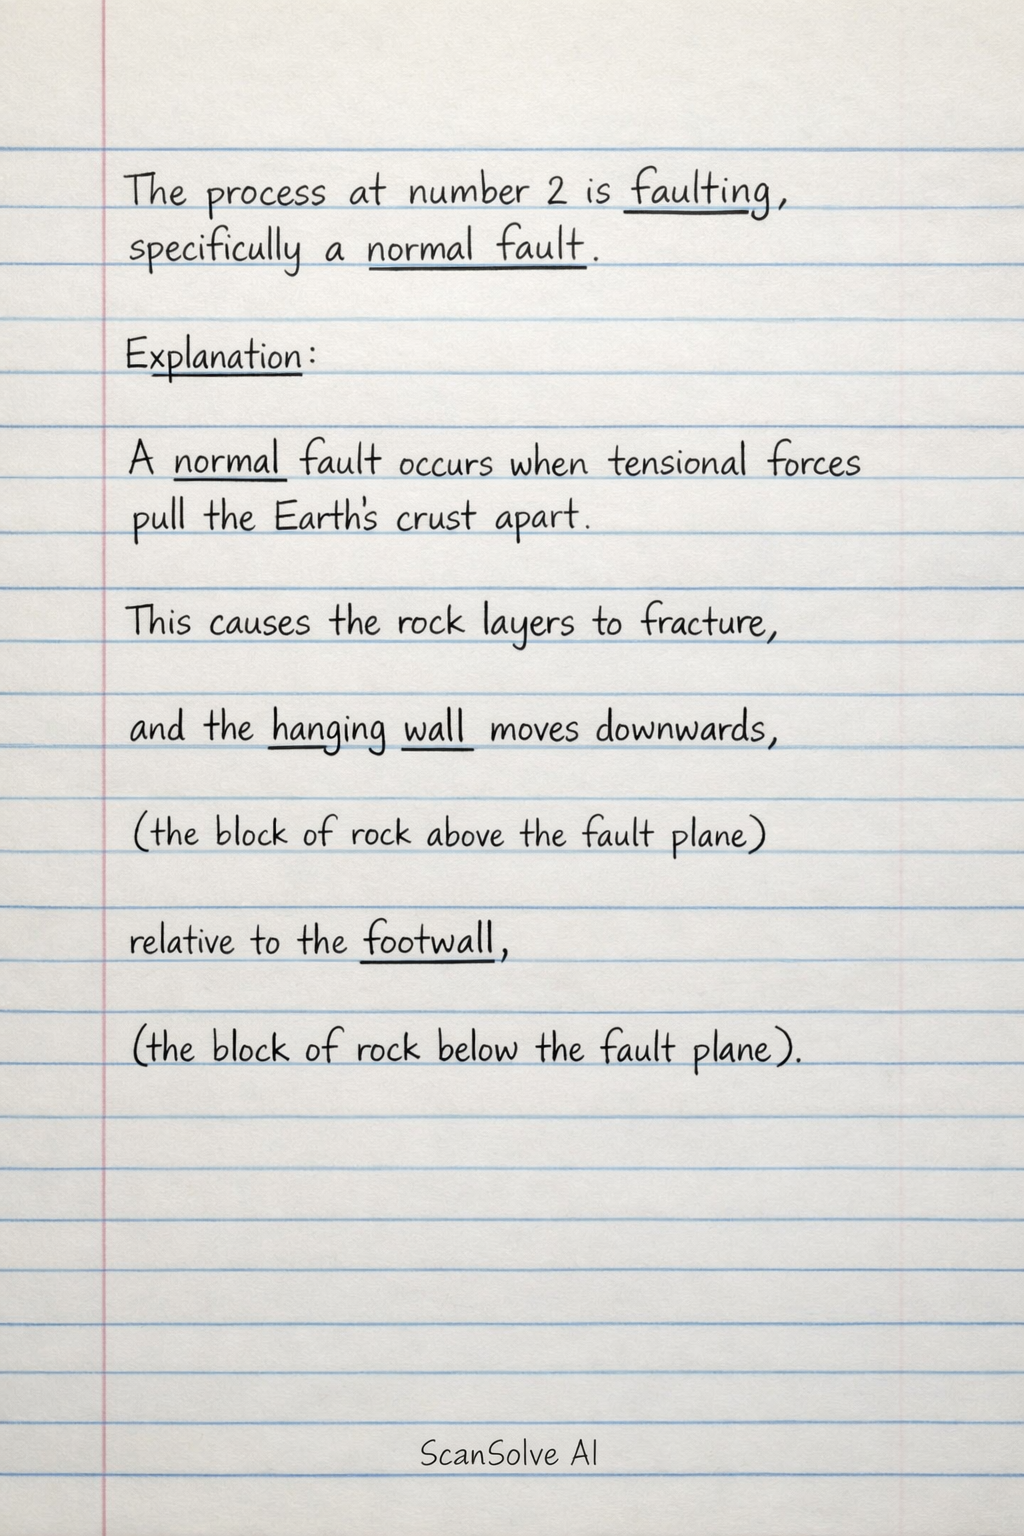 The process at number 2 is faulting,
specifically a normal fault.
Explanation:
A normal fault occurs when tensional forces
pull the Earth's crust apart.
This causes the rock layers to fracture,
and the hanging wall moves downwards,
(the block of rock above the fault plane)
relative to the footwall,
(the block of rock below the fault plane).
ScanSolve AI